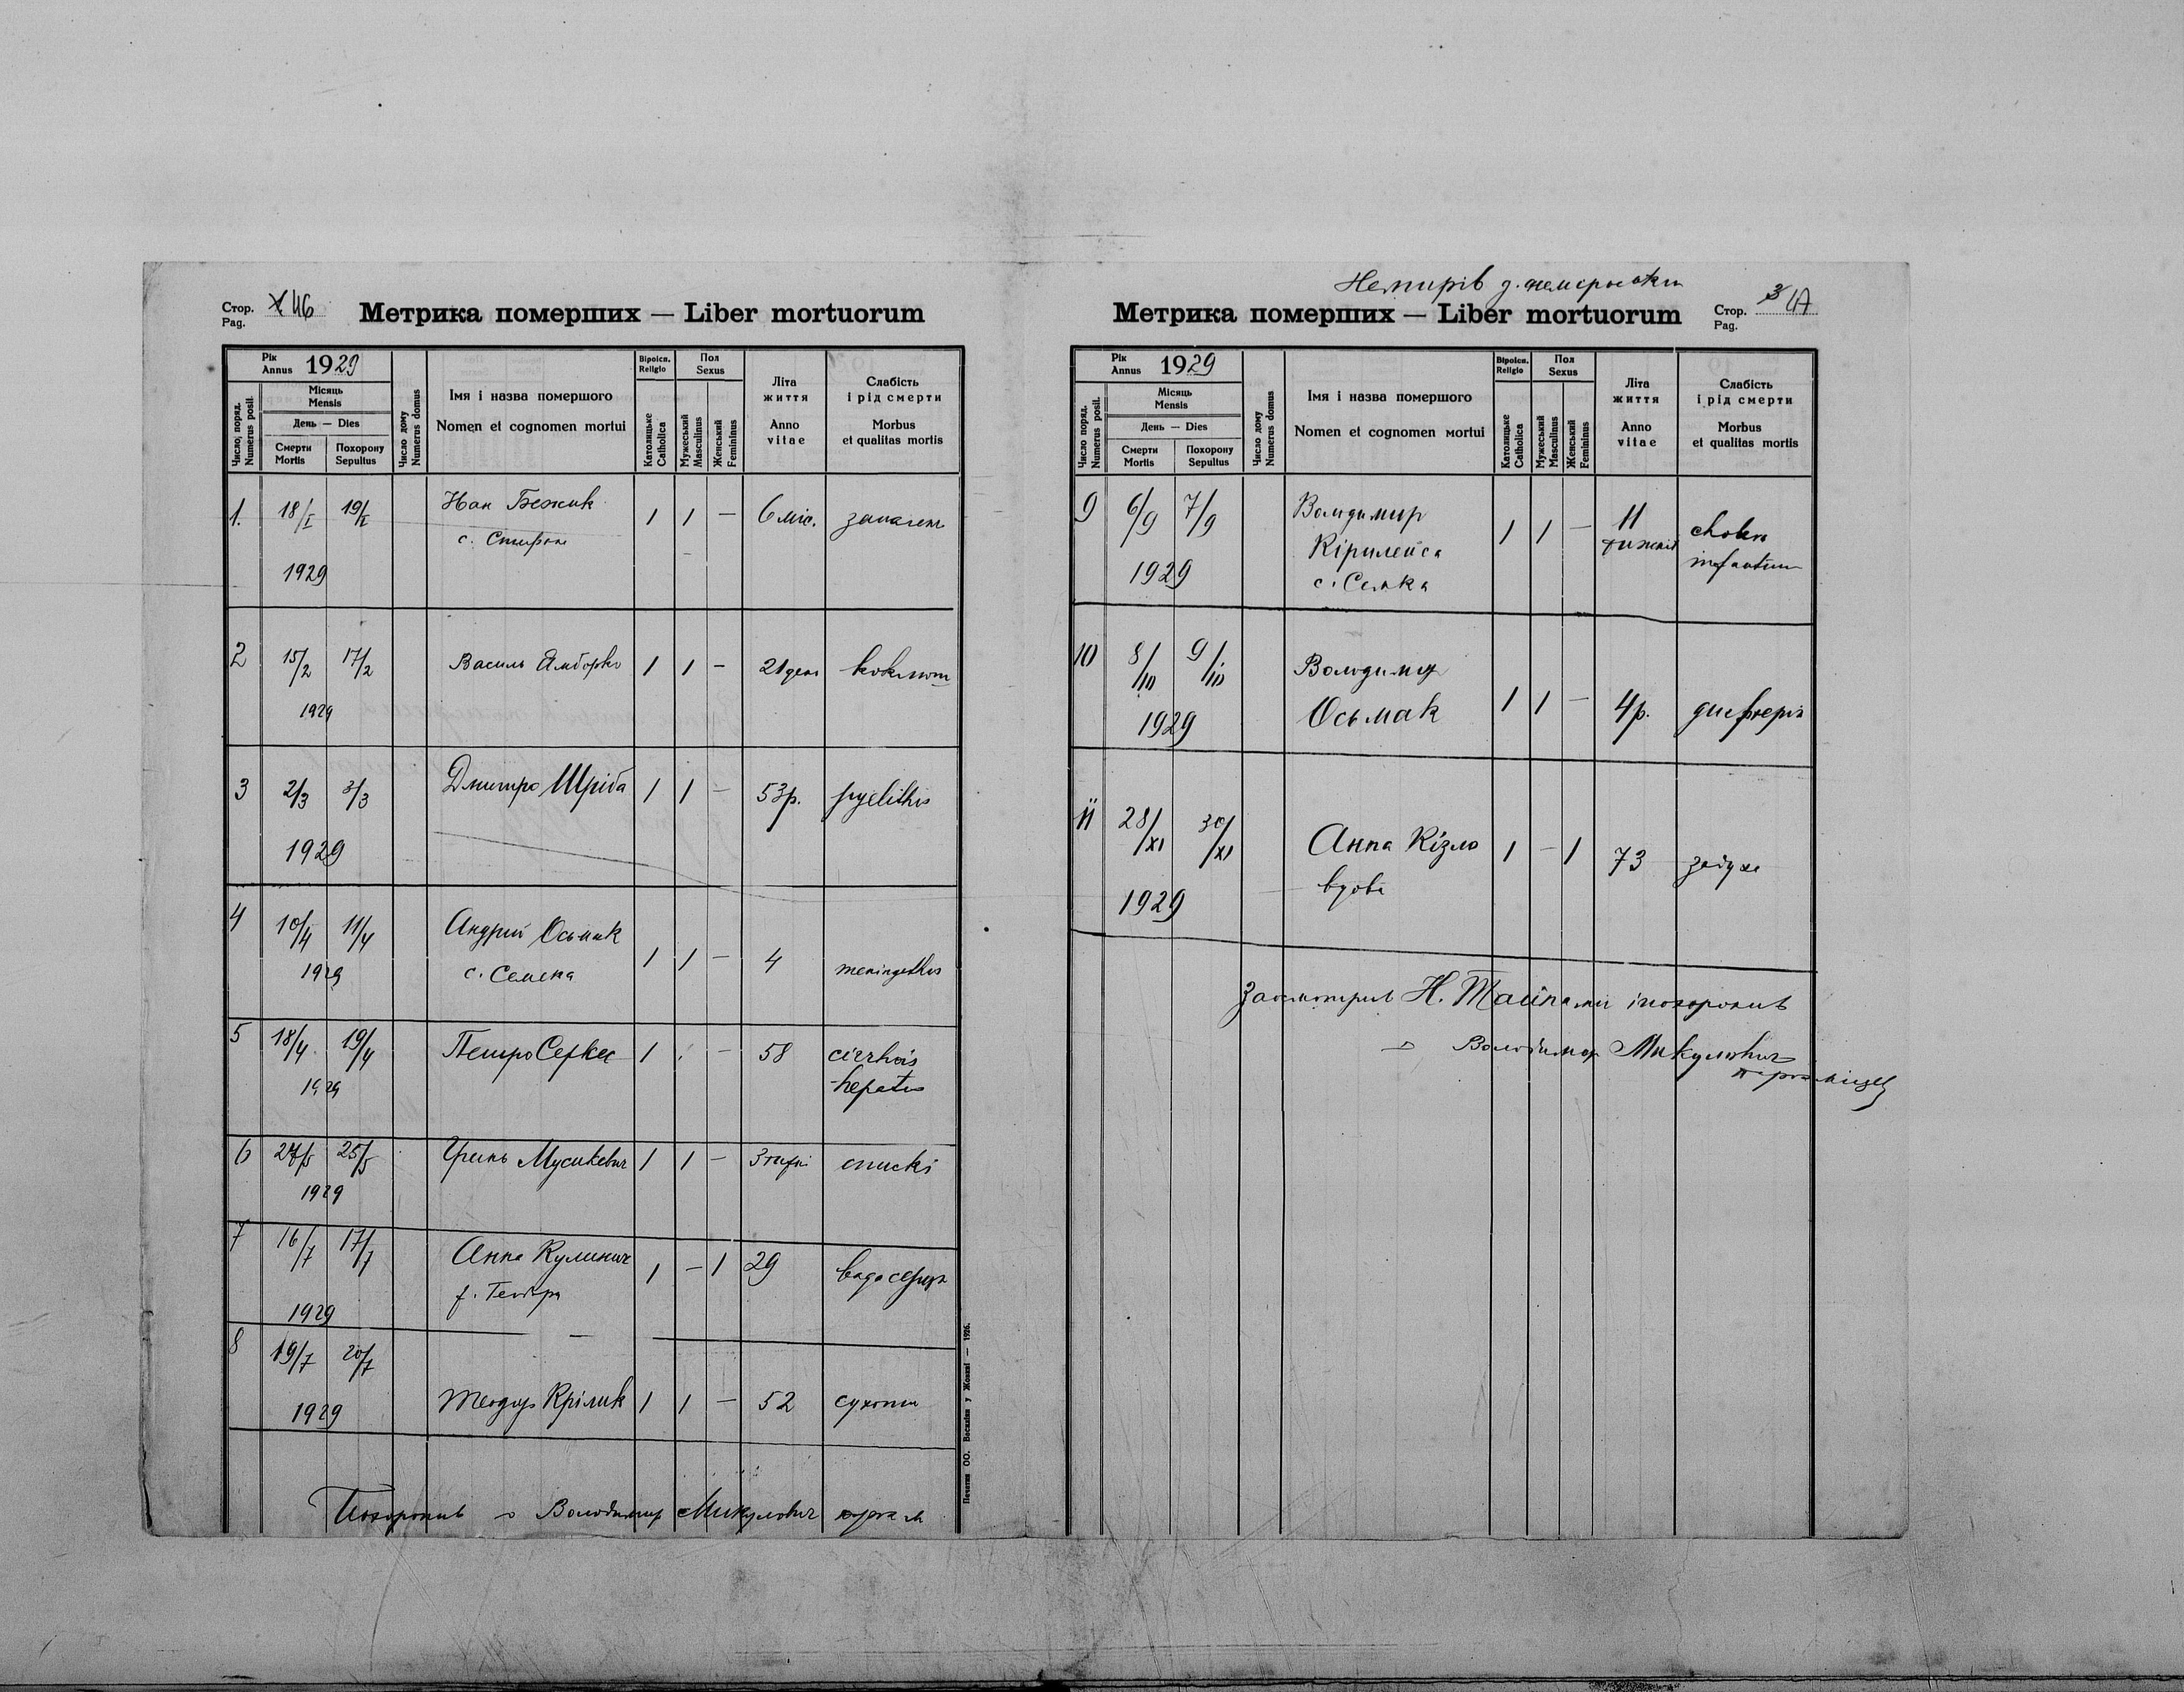 Стор. 46
Pag.
Метрика померших — Liber mortuorum
Рік 1929
Annus
Місяць
Mensis
День — Dies
Смерти Похорону
Mortis Sepultus
Число, поряд.
Numerus posit.
Число дому
Numerus domus
Імя і назва помершого
Nomen et cognomen mortui
Віроісп.
Religio
Католицьке
Catholica
Пол
Sexus
Мужеський
Masculinus
Женський
Femininus
Літа
життя
Anno
vitae
Слабість
і рід смерти
Morbus
et qualitas mortis
1. 18/I 19/I Іван 1 1 — 6 міс.
1929
2 15/2 17/2 Василь 1 1 — 21 коклюш
1929
3 2/3 3/3 Дмитро Шріба 1 1 — 53 р. pyelithis
1929
4 10/4 11/4 Андрій Осьмак 1 1 — 4 meningithis
1929 с. Семена
5 18/4 19/4 Петро 1 — 58 cirrhois
1929 hepatis
6 25/5 Гринь Мусикевич 1 1 — 3
1929
7 16/7 17/7 Анна Кулинич 1 — 1 29 вада серця
1929
8 19/7 20/7
1929 Теодор Крілик 1 1 — 52 сухоти
Похоронив о Володимир Микулович
Печатня ОО. Василіян у Жовкві — 1926.
Немирів
Метрика померших — Liber mortuorum
Стор. 47
Pag.
Рік 1929
Annus
Місяць
Mensis
День — Dies
Смерти Похорону
Mortis Sepultus
Число поряд.
Numerus posit.
Число дому
Numerus domus
Імя і назва помершого
Nomen et cognomen мortui
Віроісп.
Religio
Католицьке
Catholica
Пол
Sexus
Мужеський
Masculinus
Женський
Femininus
Літа
життя
Anno
vitae
Слабість
і рід смерти
Morbus
et qualitas mortis
9 6/9 7/9 Володимир 1 1 — 11
1929 infantum
10 8/10 9/10 Володимир
1929 Осьмак 1 1 — 4 р. дифтерія
11 28/XI 30/XI Анна Кізло 1 — 1 73 задуха
1929 вдова
Заосмотрив Н. Тайнами і похоронив
о Володимир Микулович